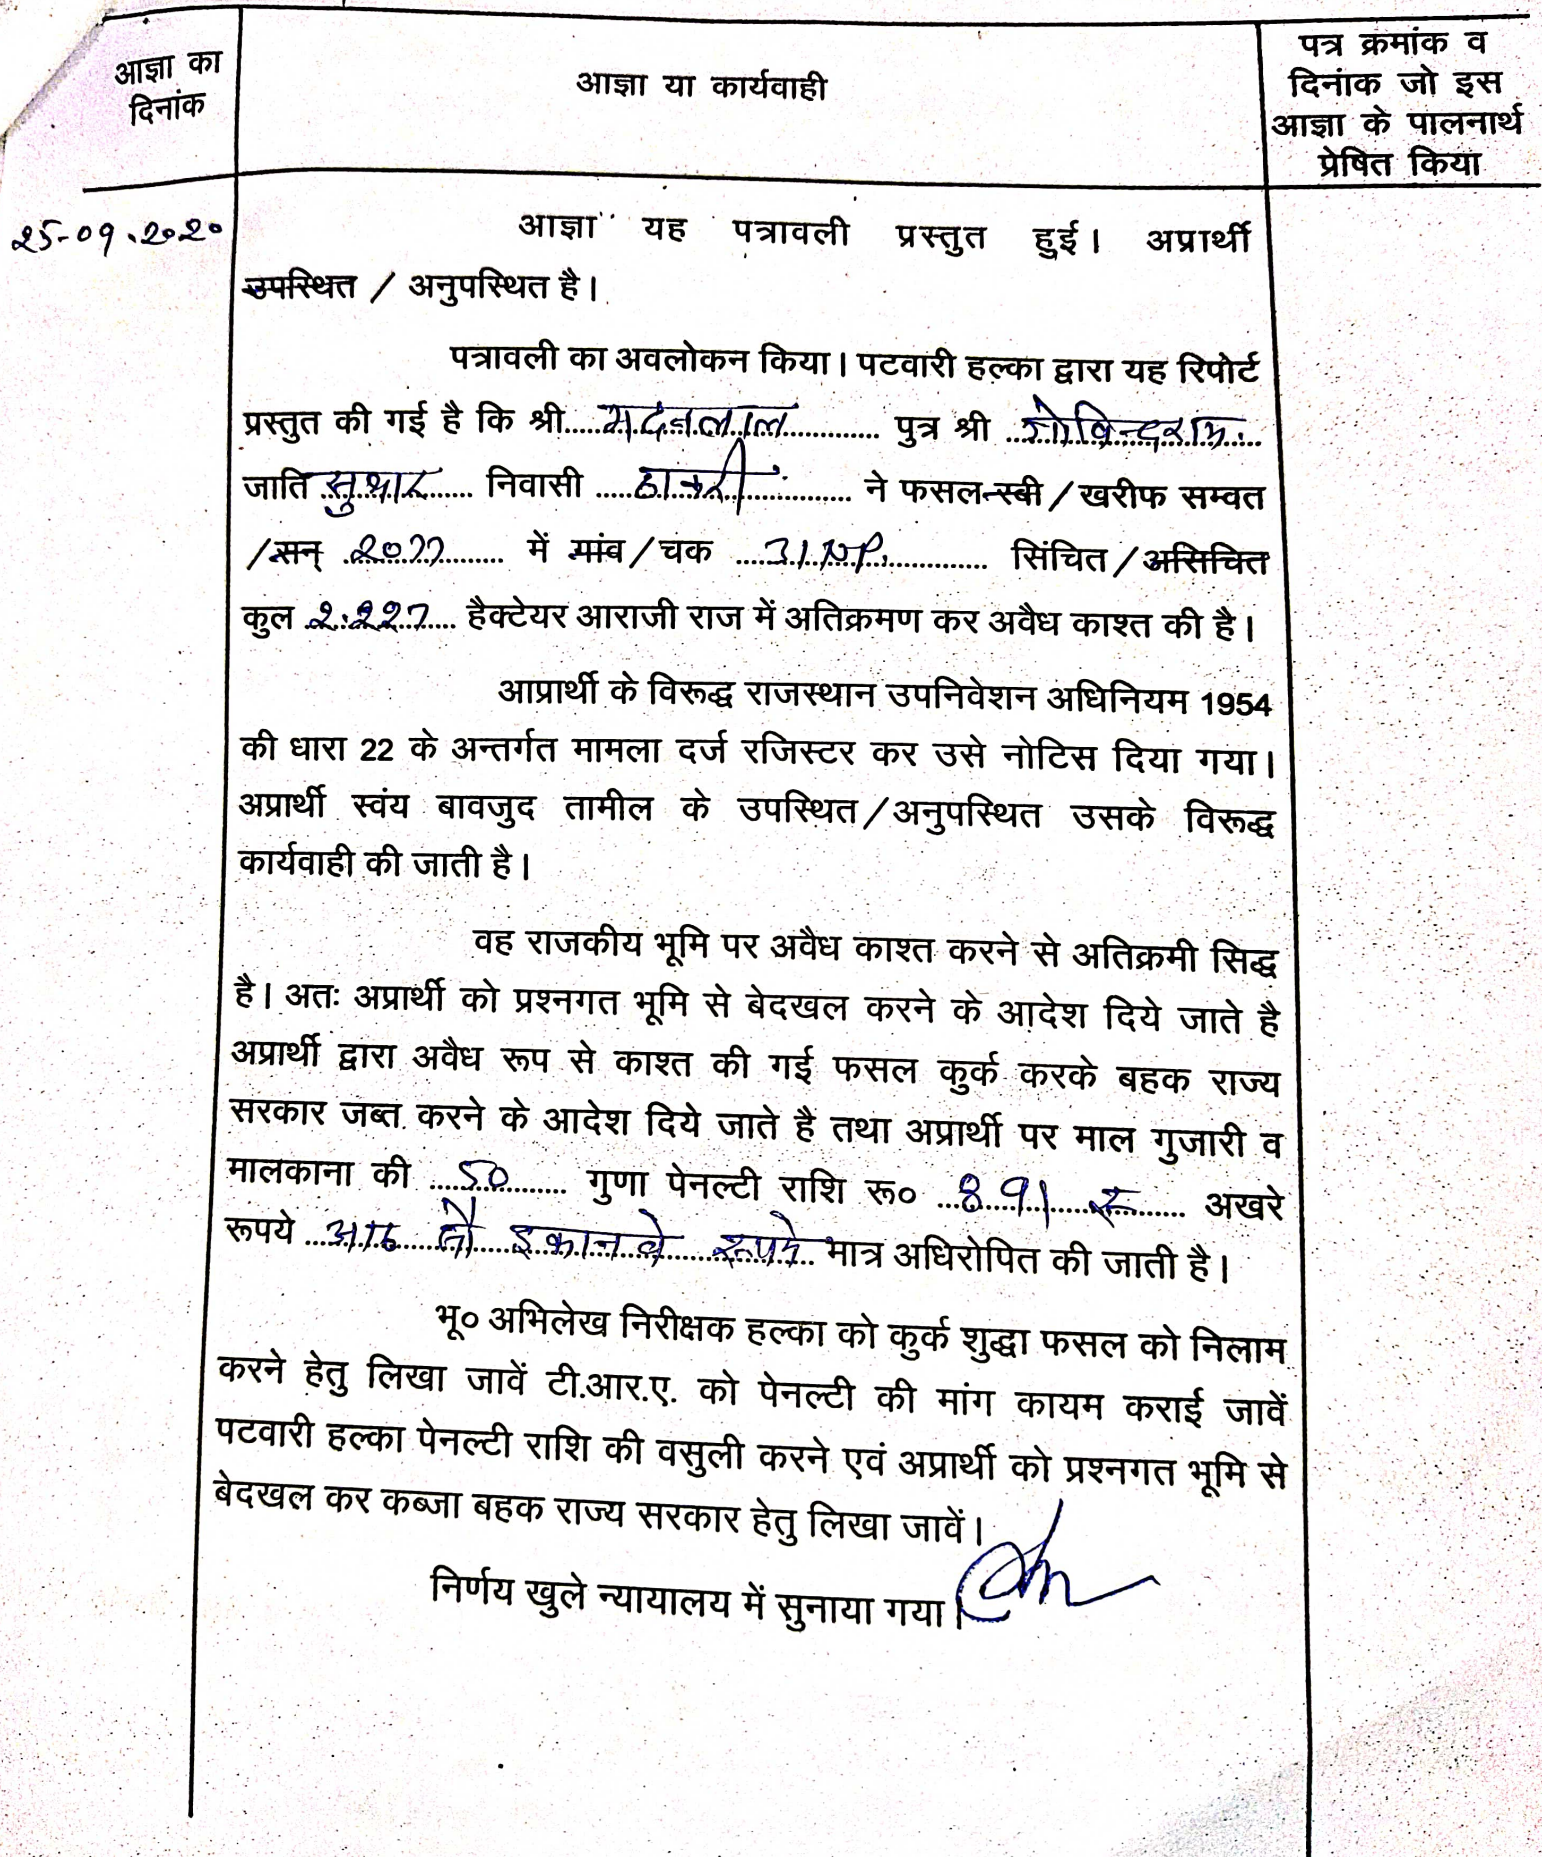 आज्ञा का
दिनांक
आज्ञा या कार्यवाही
पत्र क्रमांक व
दिनांक जो इस
आज्ञा के पालनार्थ
प्रेषित किया
25-09.2020
आज्ञा यह पत्रावली प्रस्तुत हुई। अप्रार्थी
उपस्थित / अनुपस्थित है।
पत्रावली का अवलोकन किया। पटवारी हल्का द्वारा यह रिपोर्ट
प्रस्तुत की गई है कि श्री मदनलाल पुत्र श्री गोविन्दराम
जाति सुथार निवासी ने फसल रबी / खरीफ सम्वत
/ सन् 2077 में गांव / चक 31 NP. सिंचित / असिचित
कुल 2.227 हैक्टेयर आराजी राज में अतिक्रमण कर अवैध काश्त की है।
आप्रार्थी के विरूद्ध राजस्थान उपनिवेशन अधिनियम 1954
की धारा 22 के अन्तर्गत मामला दर्ज रजिस्टर कर उसे नोटिस दिया गया।
अप्रार्थी स्वंय बावजुद तामील के उपस्थित/अनुपस्थित उसके विरूद्ध
कार्यवाही की जाती है।
वह राजकीय भूमि पर अवैध काश्त करने से अतिक्रमी सिद्ध
है। अतः अप्रार्थी को प्रश्नगत भूमि से बेदखल करने के आदेश दिये जाते है
अप्रार्थी द्वारा अवैध रूप से काश्त की गई फसल कुर्क करके बहक राज्य
सरकार जब्त करने के आदेश दिये जाते है तथा अप्रार्थी पर माल गुजारी व
मालकाना की 50 गुणा पेनल्टी राशि रू० 891 रू अखरे
रूपये आठ सौ इकानवे रूपये मात्र अधिरोपित की जाती है।
भू० अभिलेख निरीक्षक हल्का को कुर्क शुद्धा फसल को निलाम
करने हेतु लिखा जावें टी.आर.ए. को पेनल्टी की मांग कायम कराई जावें
पटवारी हल्का पेनल्टी राशि की वसुली करने एवं अप्रार्थी को प्रश्नगत भूमि से
बेदखल कर कब्जा बहक राज्य सरकार हेतु लिखा जावें।
निर्णय खुले न्यायालय में सुनाया गया।